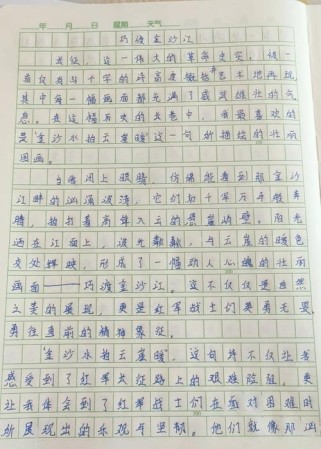 年 月 日 星期 天气
巧渡金沙江
长征,这一伟大的革命史实,被一
首仅有五十六字的诗高度概括艺术地再现
其中每一幅画面都充满了感英雄壮的气
息。在这幅历史的长卷中,我最喜欢的
是“金沙水拍云崖暖”这一句所描绘的壮丽
图画。
当我闭上眼睛,仿佛能看到那金沙
江畔的汹涌波涛,它们如千军万马般奔
腾,拍打着高耸入云的悬崖峭壁。阳光
洒在江面上,波光粼粼,与云崖的暖色
交处辉映,形成了一幅动人心魄的壮丽
画面——巧渡金沙江。这不仅仅是自然
之美的展现,更是红军战士们英勇无畏、
勇往直前的精神象征。
“金沙水拍云崖暖”,这句诗不仅让我
感受到了红军长征路上的艰难险阻,更
让我体会到了红军战士们在面对困难时
所展现出的乐观与坚韧。他们就像那汹